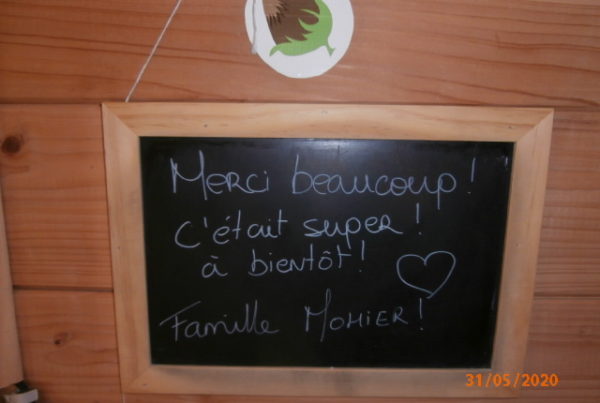 Merci beaucoup !
C'était super !
à bientôt !
Famille MOMIER !
31/05/2020